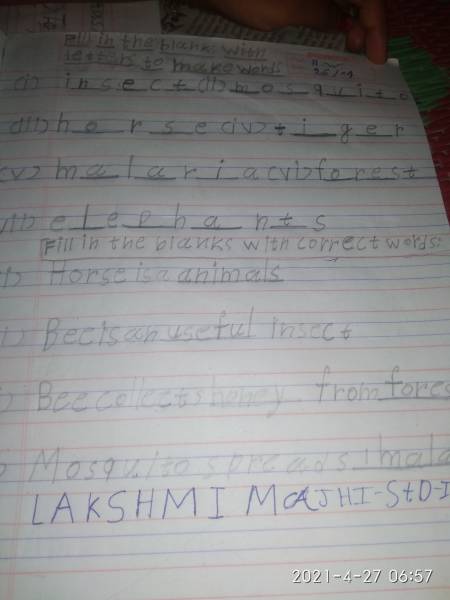 Fill in the blanks with
letters to make words
(i) insect (ii) mosquito
(iii) horse (iv) tiger
(v) malaria (vi) forest
(vii) elephants
Fill in the blanks with correct words:
Horse is a animals
Bee is an useful insect
Bee collects honey from fores
Mosquito spreads mala
LAKSHMI MAJHI-StD-I
2021-4-27 06:57